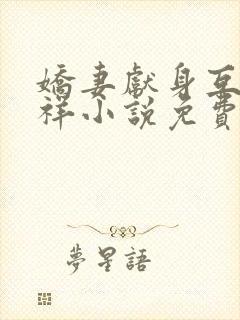 嬌妻獻身互
祥小說免費
夢星語